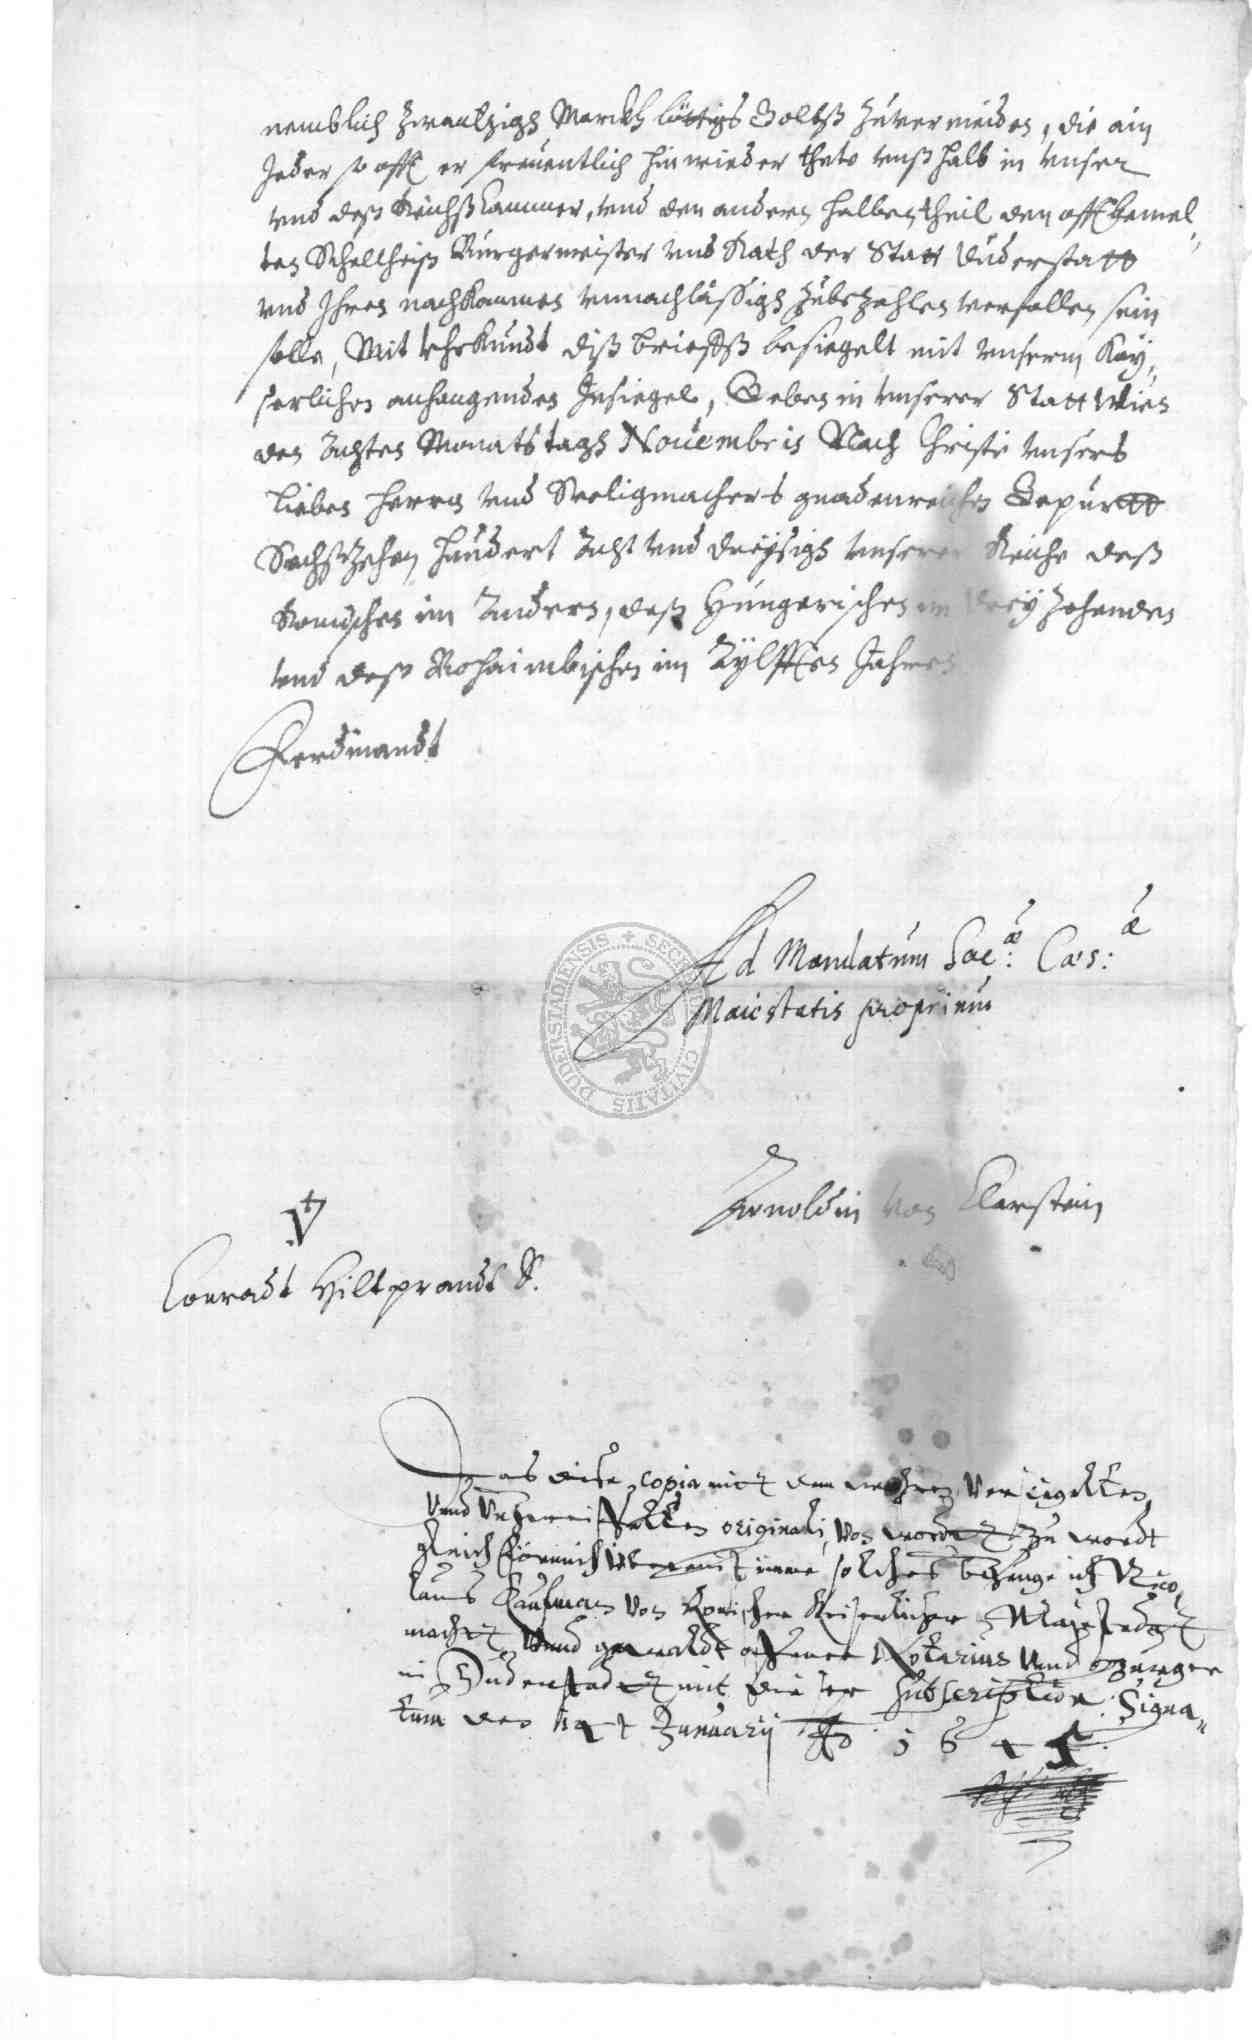 nemblich zwantzigh Marckh löttigs Goltß zuvermeiden, die ain
Jeder so offt er freuentlich hinwieder thete unß halb in unser
und deß Reichß Cammer, und den andern halben theil den offtbemel„
ten Scheltheiß Bürgermeister und Rath der Statt Duderstatt
und Ihren nachkommen unnachläßigh zubezahlen verfallen sein
solle, Mit uhrkundt diß brieffß besiegelt mit unserm Kay„
serlichen anhangenden Insiegel, Geben in unserer Statt Wien
den Achten Monatstagh Nouembris Nach Christi unsers
lieben Herrn und Seeligmachers gnadenreichen Gepurtt
Sechßzehen hundert Acht und dreysigh unserer Reiche deß
Romischen im Andern, deß Hungerischen im dreyzehenden
und deß Bohaimbischen im Zylfften Jahren
Ferdinandt
Ad Mandatum Sac:æ Cæs:æ
Maiestatis proprium
Arnoldin von Clarstein
Vt
Conradt Hiltprandt S.
SECRETUM CIVITATIS DUDERSTADENSIS
Das diese copia mit dem wahren versigelten
unnd originali, von wordt zu wordt
gleich förmich solches bezeuge ich Nico„
laus Kaufman von Romischer Keiserlicher Mayestedt
macht unnd gewaldt offener Notarius unnd Burger
in Duderstadt mit dieser subscription. Signa„
tum den Januarij Ao. 164